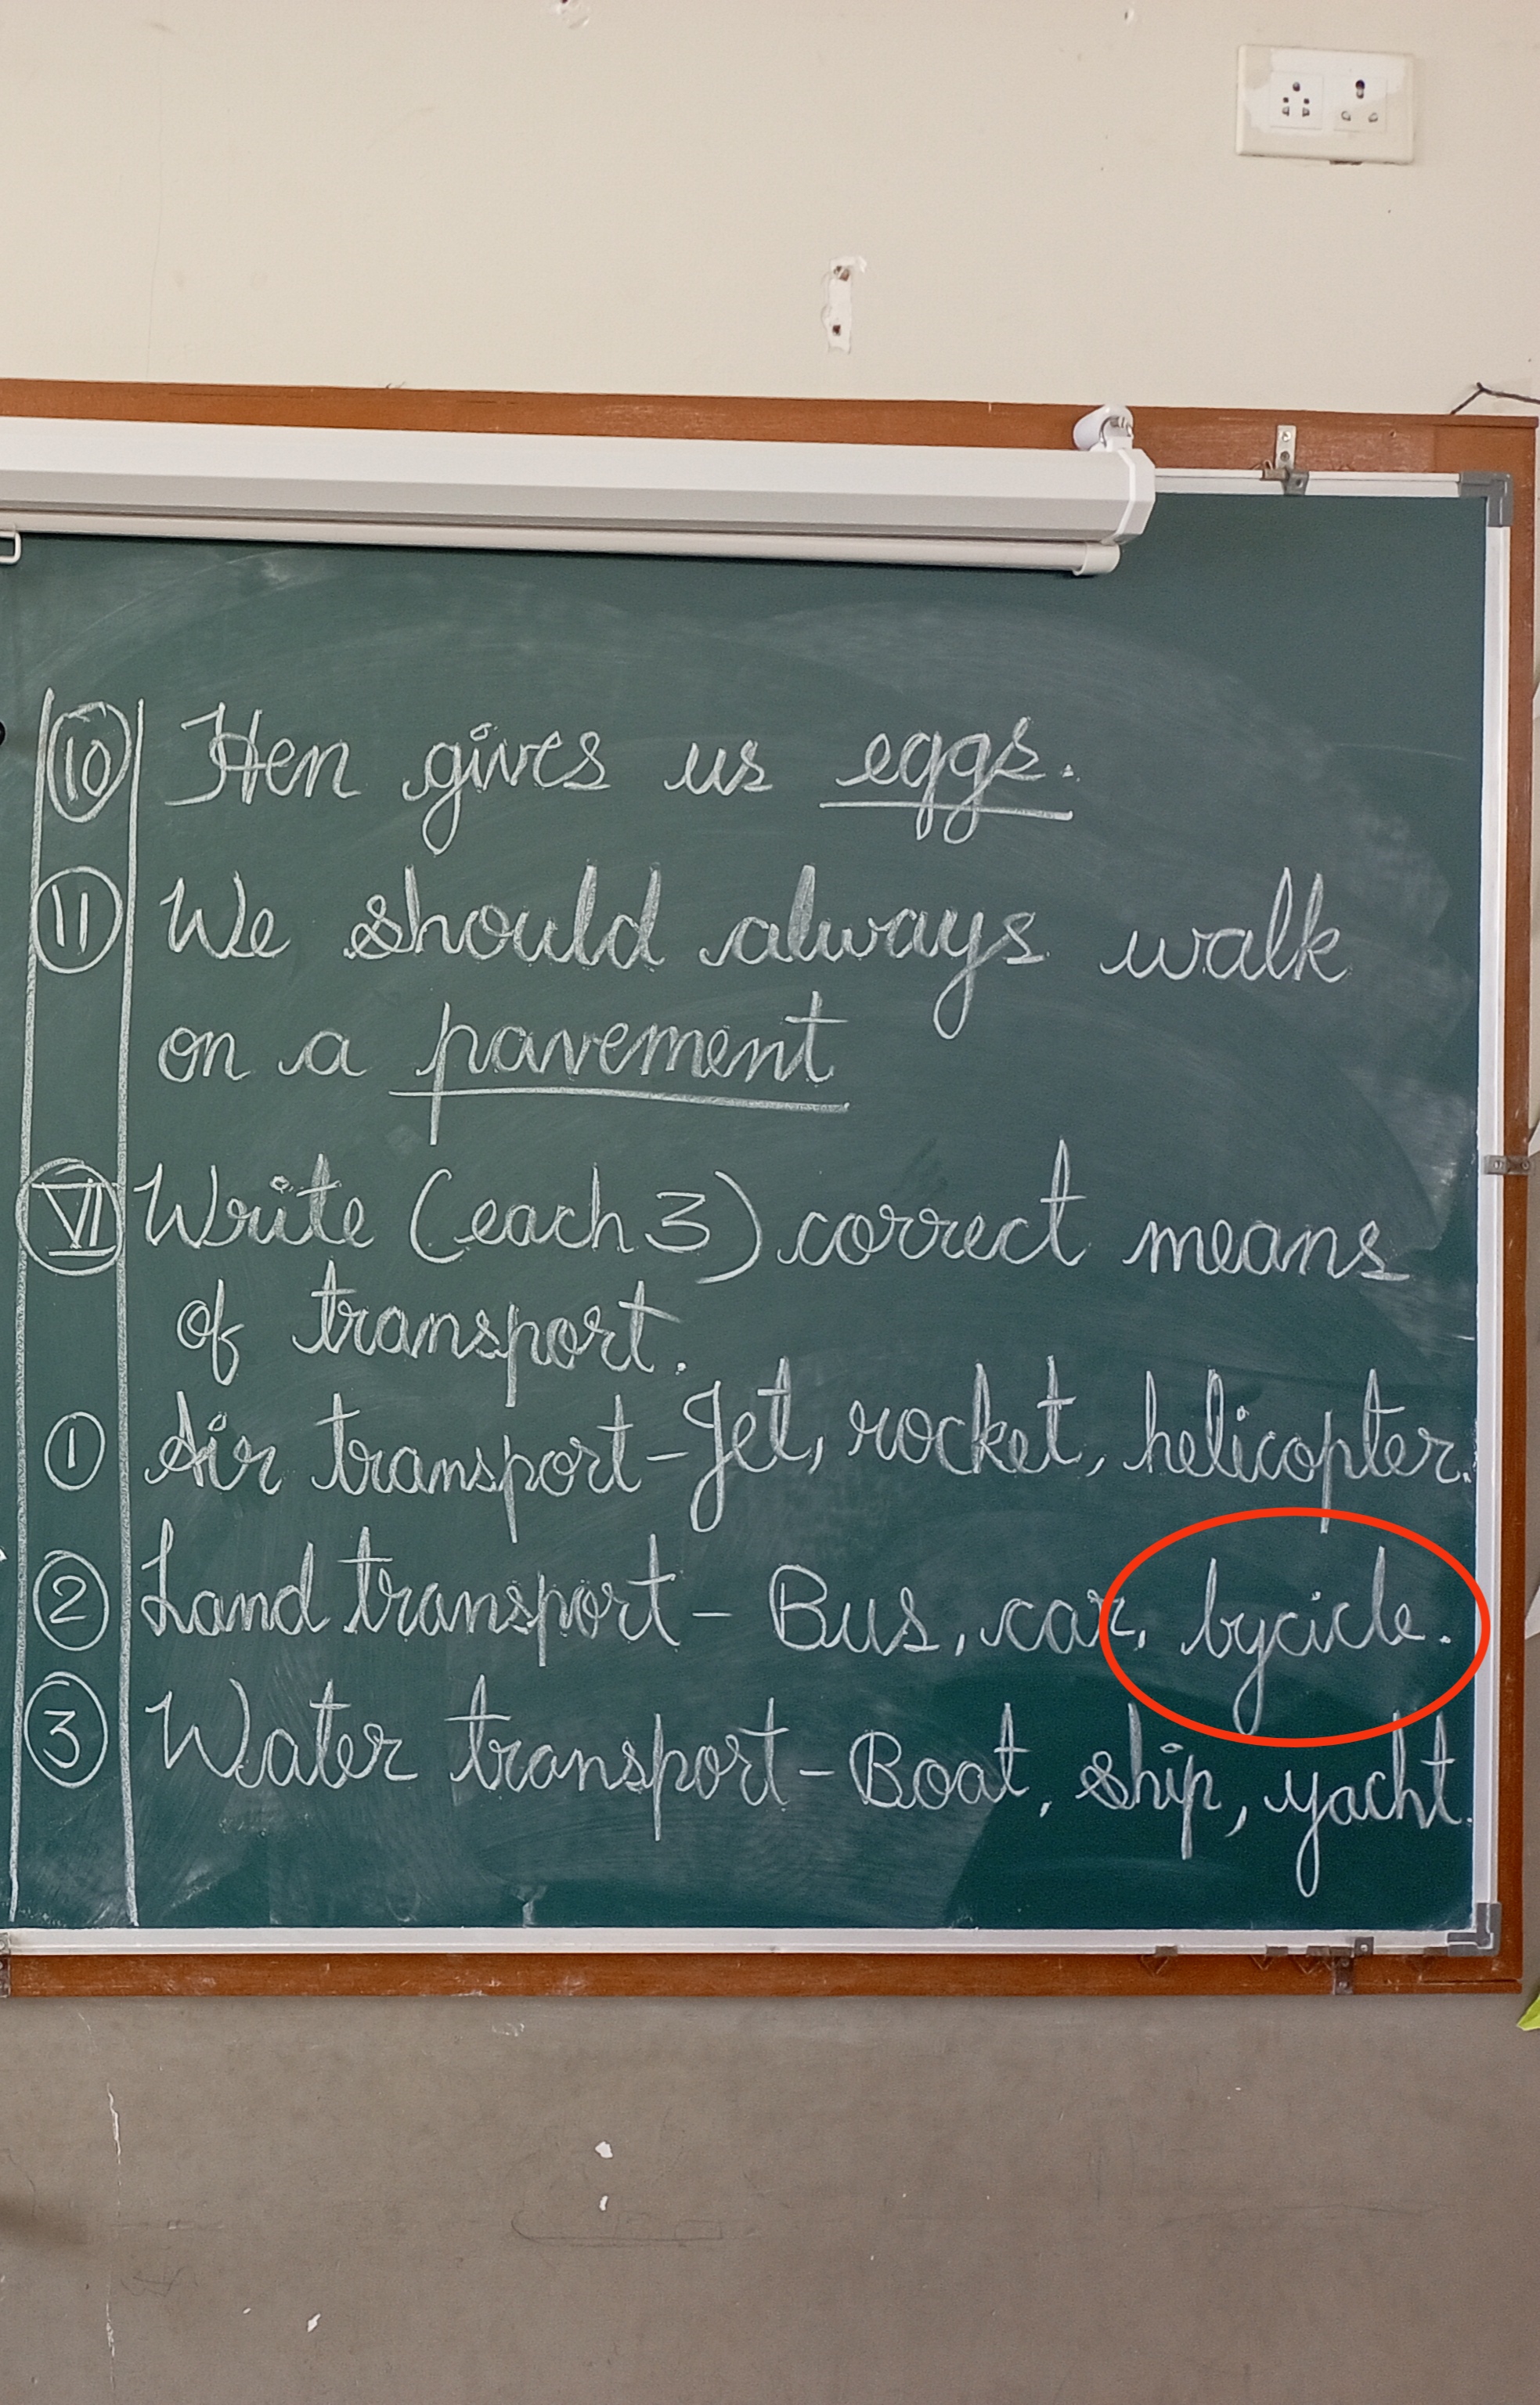 10 Hen gives us eggs.
11 We should always walk
on a pavement
VI Write (each 3) correct means
of transport.
1 Air transport - Jet, rocket, helicopter.
2 Land transport - Bus, car, bycicle.
3 Water transport - Boat, ship, yacht.